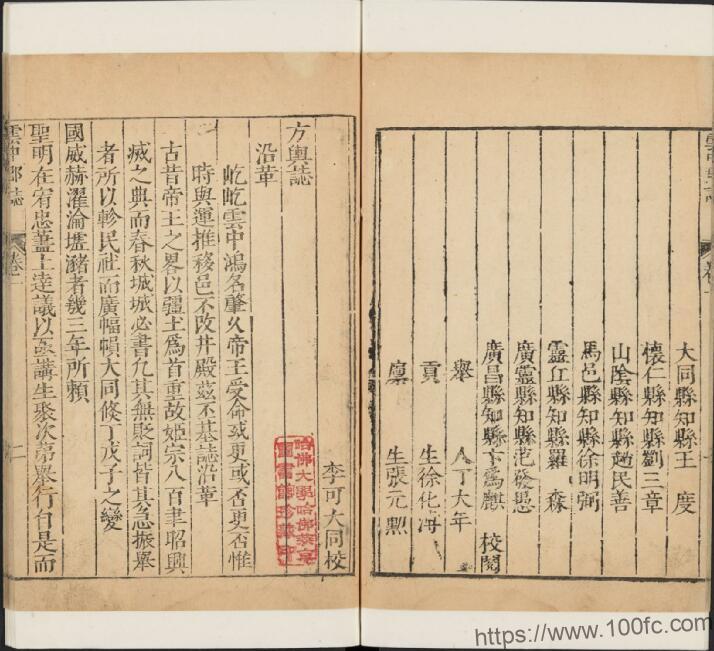 大同縣知縣王　度
懷仁縣知縣劉三章
山陰縣知縣趙民善
馬邑縣知縣徐明弼
靈丘縣知縣羅　森
廣靈縣知縣范發愚
廣昌縣知縣卞爲麒　校閱
舉　人丁大年
貢　生徐化溥
廩　生張元勲
李可大同校
方輿誌
沿革
屹屹雲中鴻名肇久帝王受命或更或否更否惟
時與運推移邑不改井殿茲丕基誌沿革
古昔帝王之畧以疆土爲首重故姬宗八百聿昭興
滅之典而春秋城城必書凢其無貶詞皆其急振舉
者所以軫民社而廣幅幀大同修丁戊子之變
國威赫濯淪壢瀦者幾三年所頼
聖明在宥忠藎上逹議以亟講生聚次第舉行自是而
雲中郡誌
卷一
二
哈佛大學哈佛燕京圖書館珍藏印
https://www.100fc.com